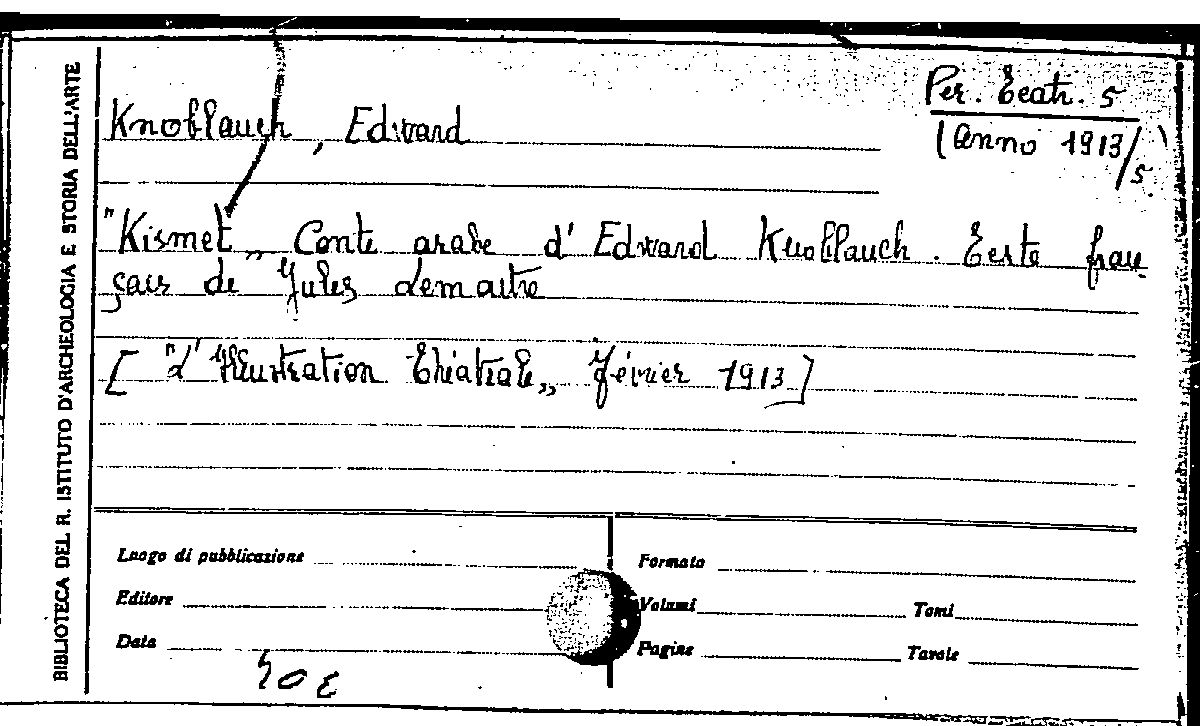 Per. Teatr. 5
(Anno 1913/5.)
Knoblauch, Edward
"Kismet„ Conte arabe d'Edward Knoblauch. Texte fran
çais de Jules Lemaitre
[ "L'Illustration Théâtrale„ Février 1913 ]
BIBLIOTECA DEL R. ISTITUTO D'ARCHEOLOGIA E STORIA DELL'ARTE
Luogo di pubblicazione
Formato
Editore
Volumi Tomi
Data
Pagine Tavole